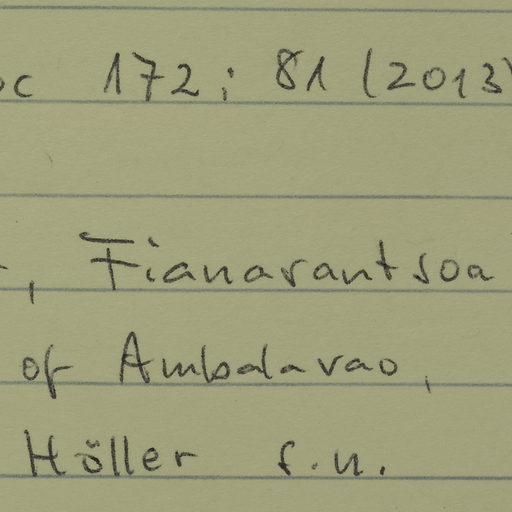 oc 172; 81 (2013)
, Fianarantsoa
of Ambalavao,
Höller s.n.